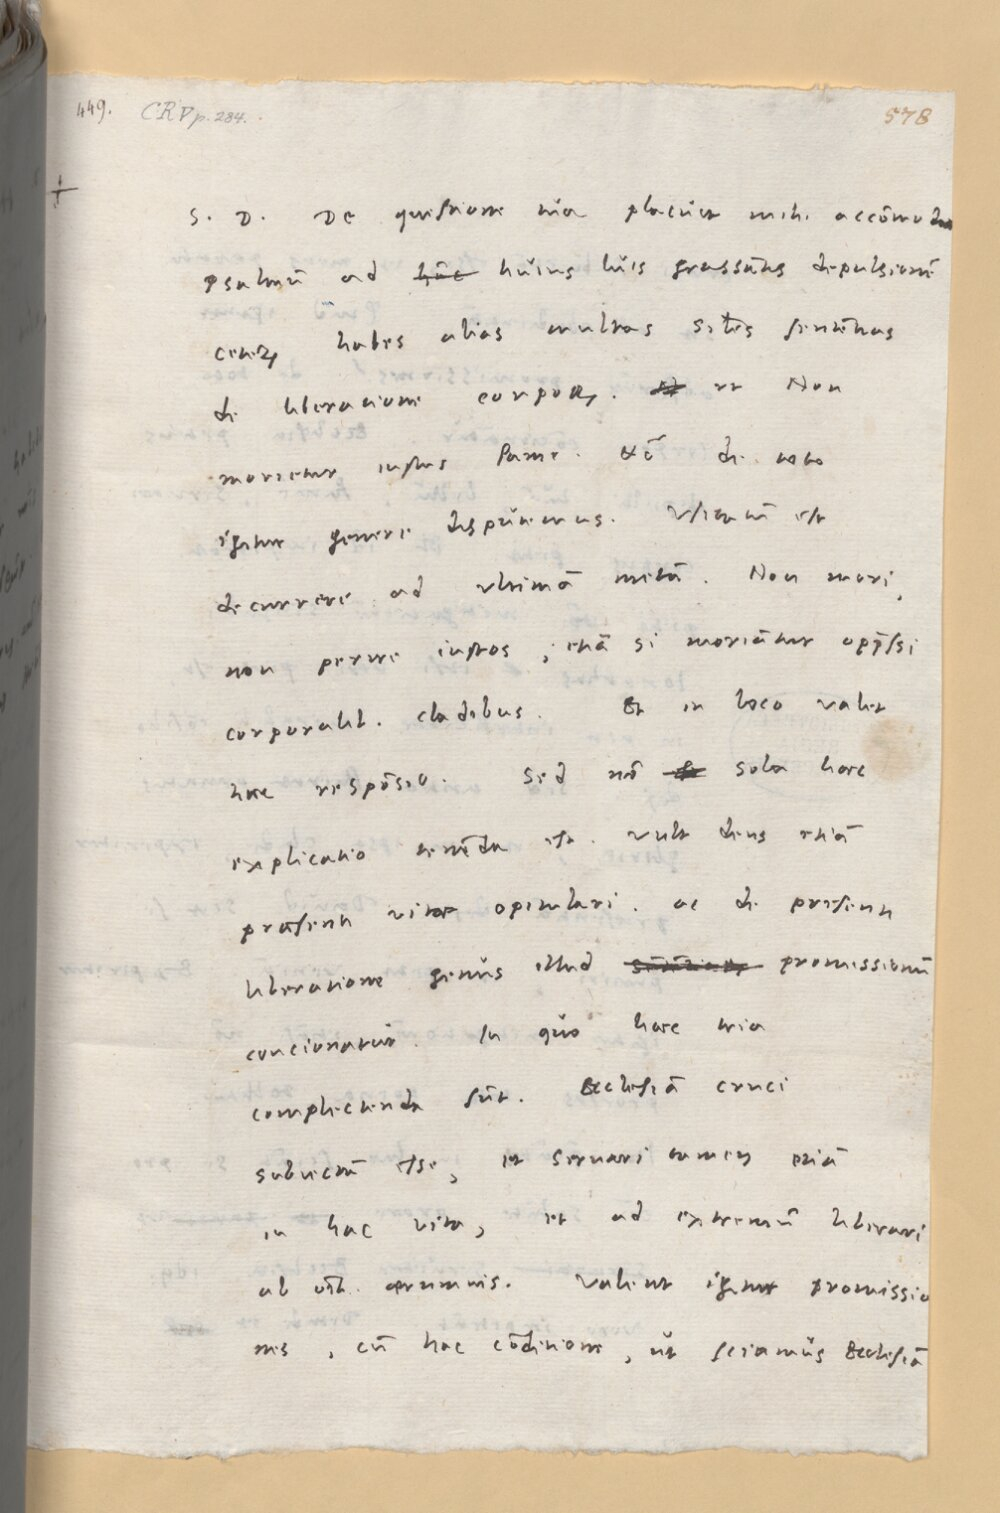 449. CR V p. 284.
578
S. D. De questione tua placuit mihi accōmodatio
psalmū ad hāc huius luis grassātis depulsionē
ceterū habes alias multas siles sententias
de liberatione corporū. ut Non
morietur iustus fame. Et de toto
igitur genere disputemus. Usitatū est
decurrere ad ultimā metā. Non mori,
non perire iustos, etiā si moriātur opp̄ssi
corporalib. cladibus. Et in loco valet
haec respōsio. Sed nō sola haec
explicatio tenēda est. Vult deus etiā
praesenti vitae opitulari. ac de presenti
liberatione genus illud promissionū
concionatur. In quo haec tria
complectenda sūt. Ecclesiā cruci
subiectā esse, et seruari tamen etiā
in hac vita, et ad extremū liberari
ab oīb. aerumnis. Valent igitur promissio
nes, cū hac cōditione, ut sciamus Ecclesiā